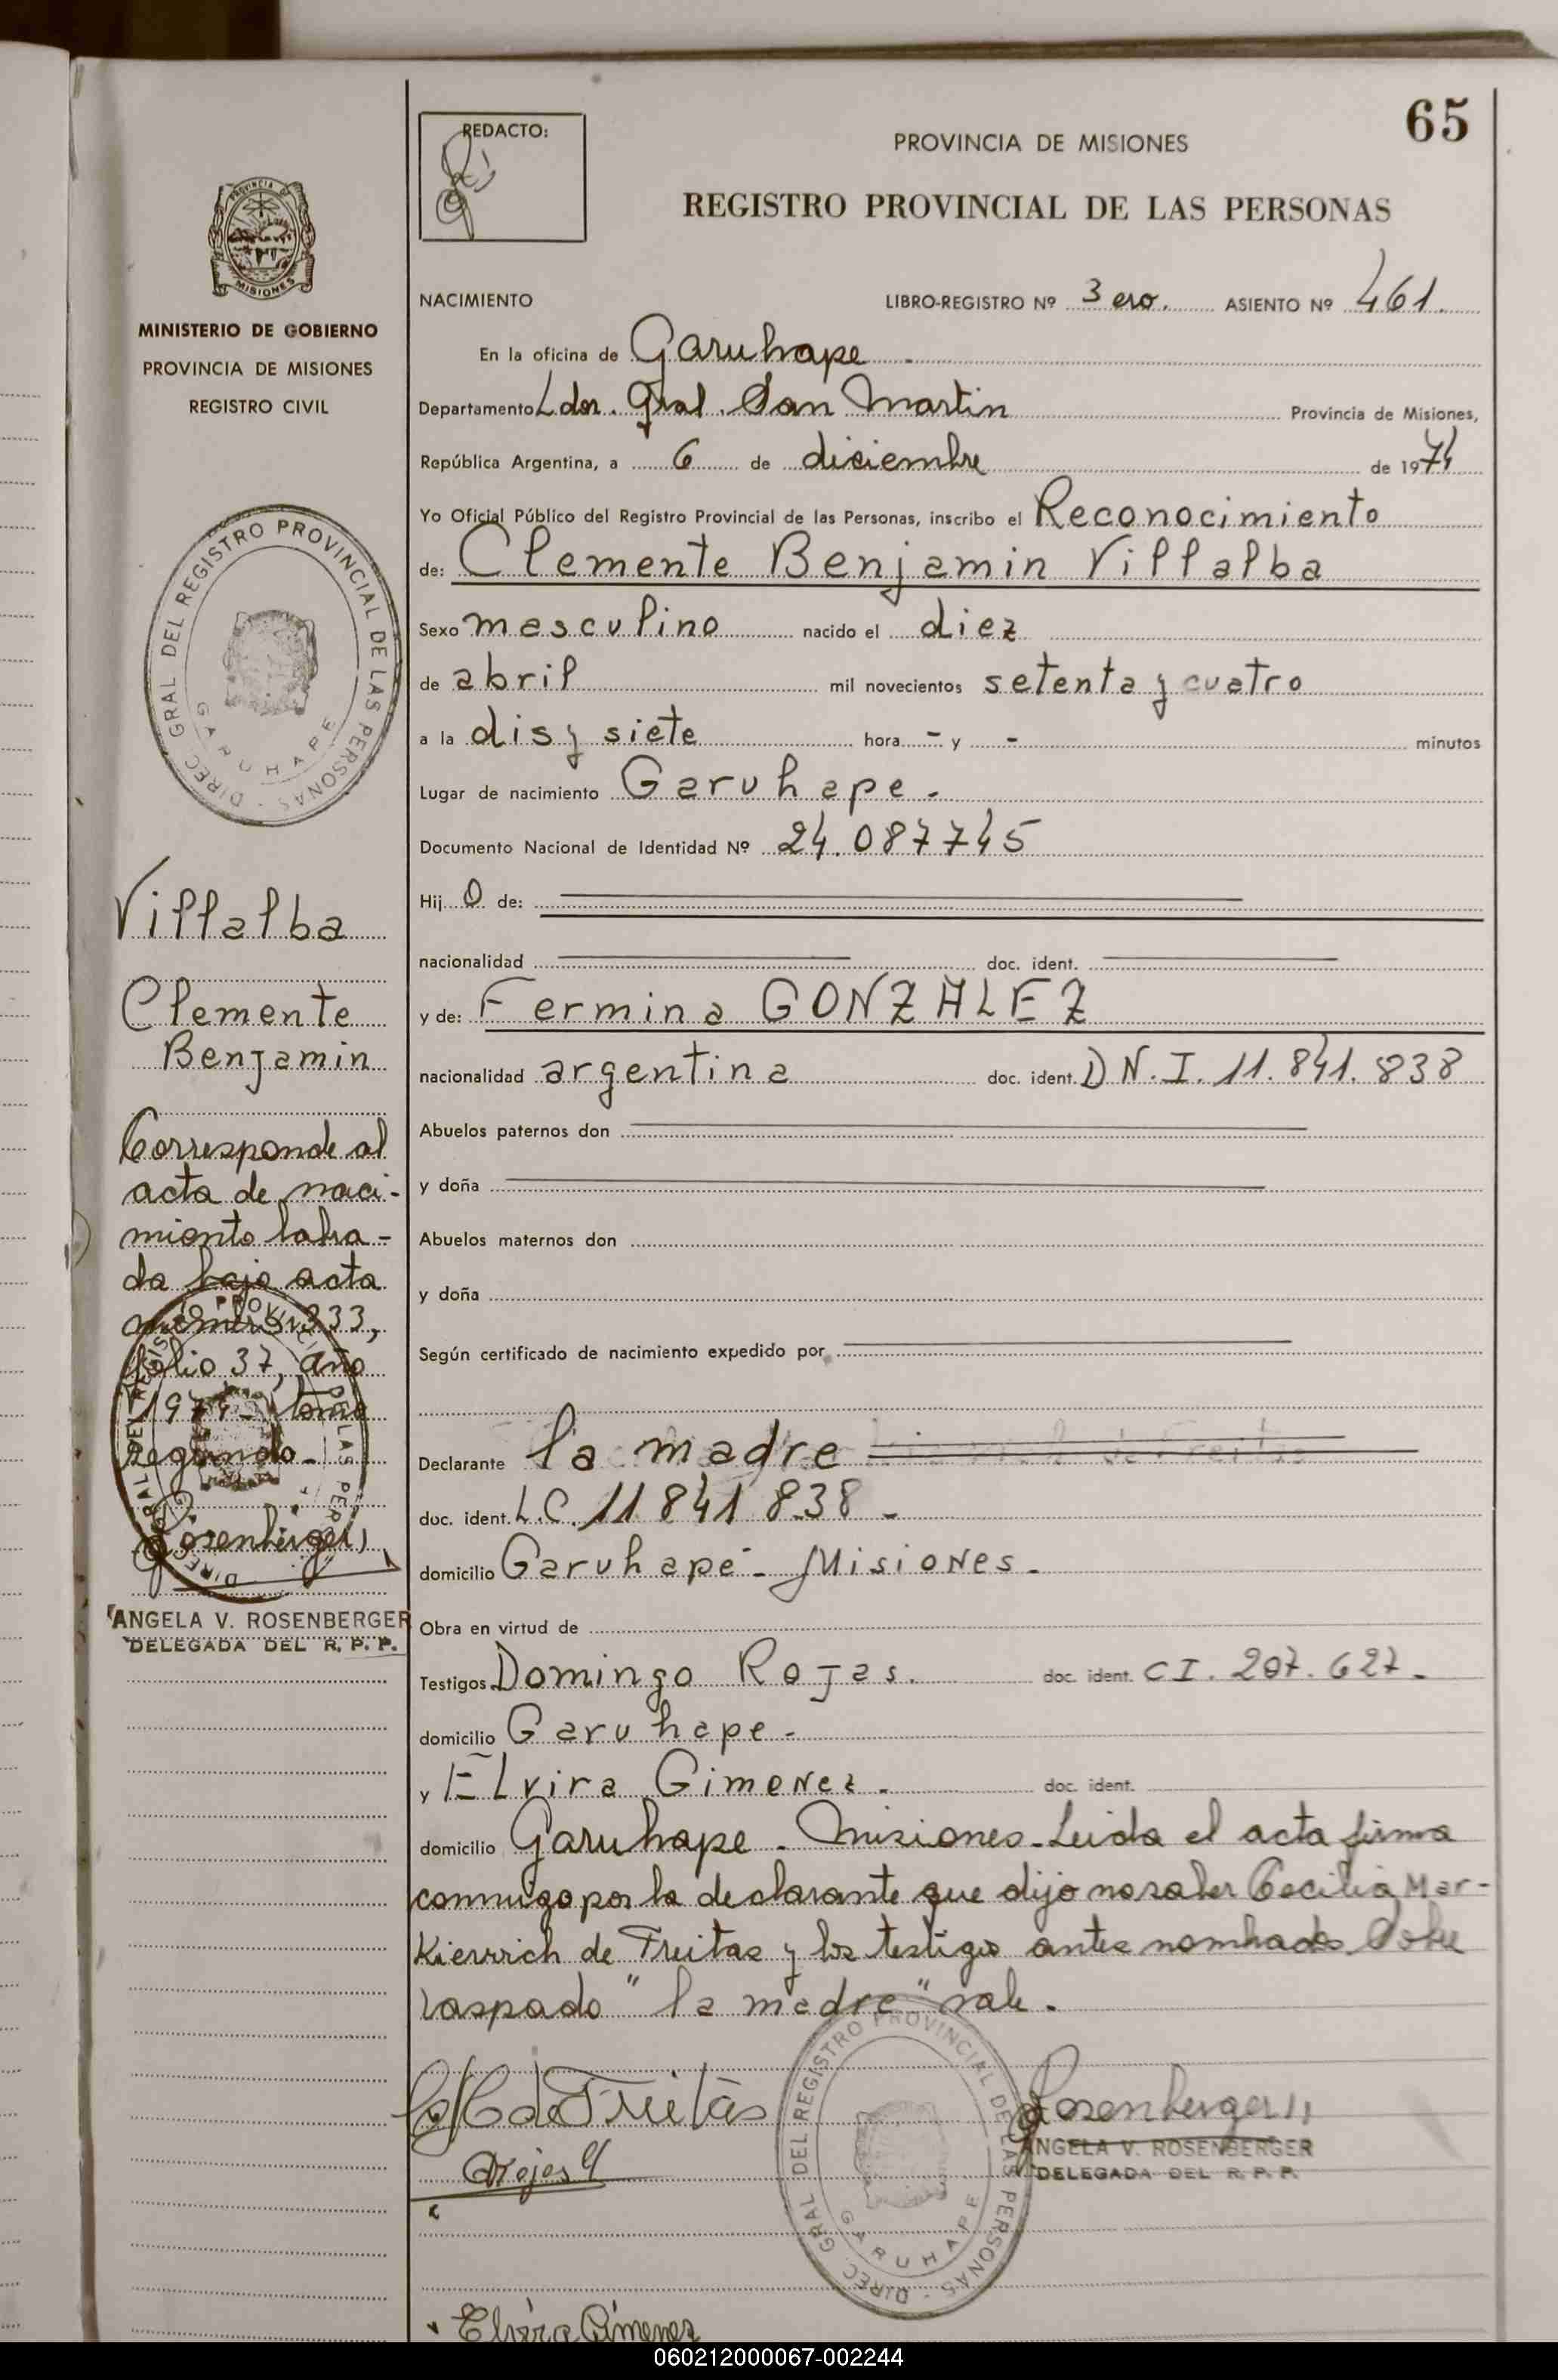 65
REDACTO:
PROVINCIA DE MISIONES
REGISTRO PROVINCIAL DE LAS PERSONAS
PROVINCIA DE
MISIONES
MINISTERIO DE GOBIERNO
PROVINCIA DE MISIONES
REGISTRO CIVIL
NACIMIENTO LIBRO-REGISTRO Nº 3 ero. ASIENTO Nº 461.
En la oficina de Garuhape
Departamento Ldor. Gral. San Martin Provincia de Misiones,
República Argentina, a 6 de diciembre de 1974
Yo Oficial Público del Registro Provincial de las Personas, inscribo el Reconocimiento
de: Clemente Benjamin Villalba
Sexo masculino nacido el diez
de abril mil novecientos setenta y cuatro
a la dis y siete hora - y - minutos
Lugar de nacimiento Garuhape.
Documento Nacional de Identidad Nº 24.087745
Hij o de:
nacionalidad doc. ident.
y de: Fermina GONZALEZ
nacionalidad argentina doc. ident. D N. I. 11. 841. 838
Abuelos paternos don
y doña
Abuelos maternos don
y doña
Según certificado de nacimiento expedido por
Declarante la madre
doc. ident. L.C. 11 841 838 -
domicilio Garuhape - Misiones.
Obra en virtud de
Testigos Domingo Rojas. doc. ident. C I. 207. 627 -
domicilio Garuhape -
y Elvira Gimenez. doc. ident.
domicilio Garuhape. Misiones. Leida el acta firma
conmigo por la declarante que dijo no saber Cecilia Mar-
Kierrich de Freitas y los testigos antes nombrados. Sobre
raspado "la madre" vale.
DIREC. GRAL DEL REGISTRO PROVINCIAL DE LAS PERSONAS
GARUHAPE
Villalba
Clemente
Benjamin
Corresponde al
acta de naci-
miento labra-
da bajo acta
número 333,
folio 37, año
1974 - tomo
segundo.
Rosenberger
ANGELA V. ROSENBERGER
DELEGADA DEL R. P. P.
de Freitas
Rojas
DIREC. GRAL DEL REGISTRO PROVINCIAL DE LAS PERSONAS
GARUHAPE
Rosenberger
ANGELA V. ROSENBERGER
DELEGADA DEL R. P. P.
Elvira Gimenez
060212000067-002244